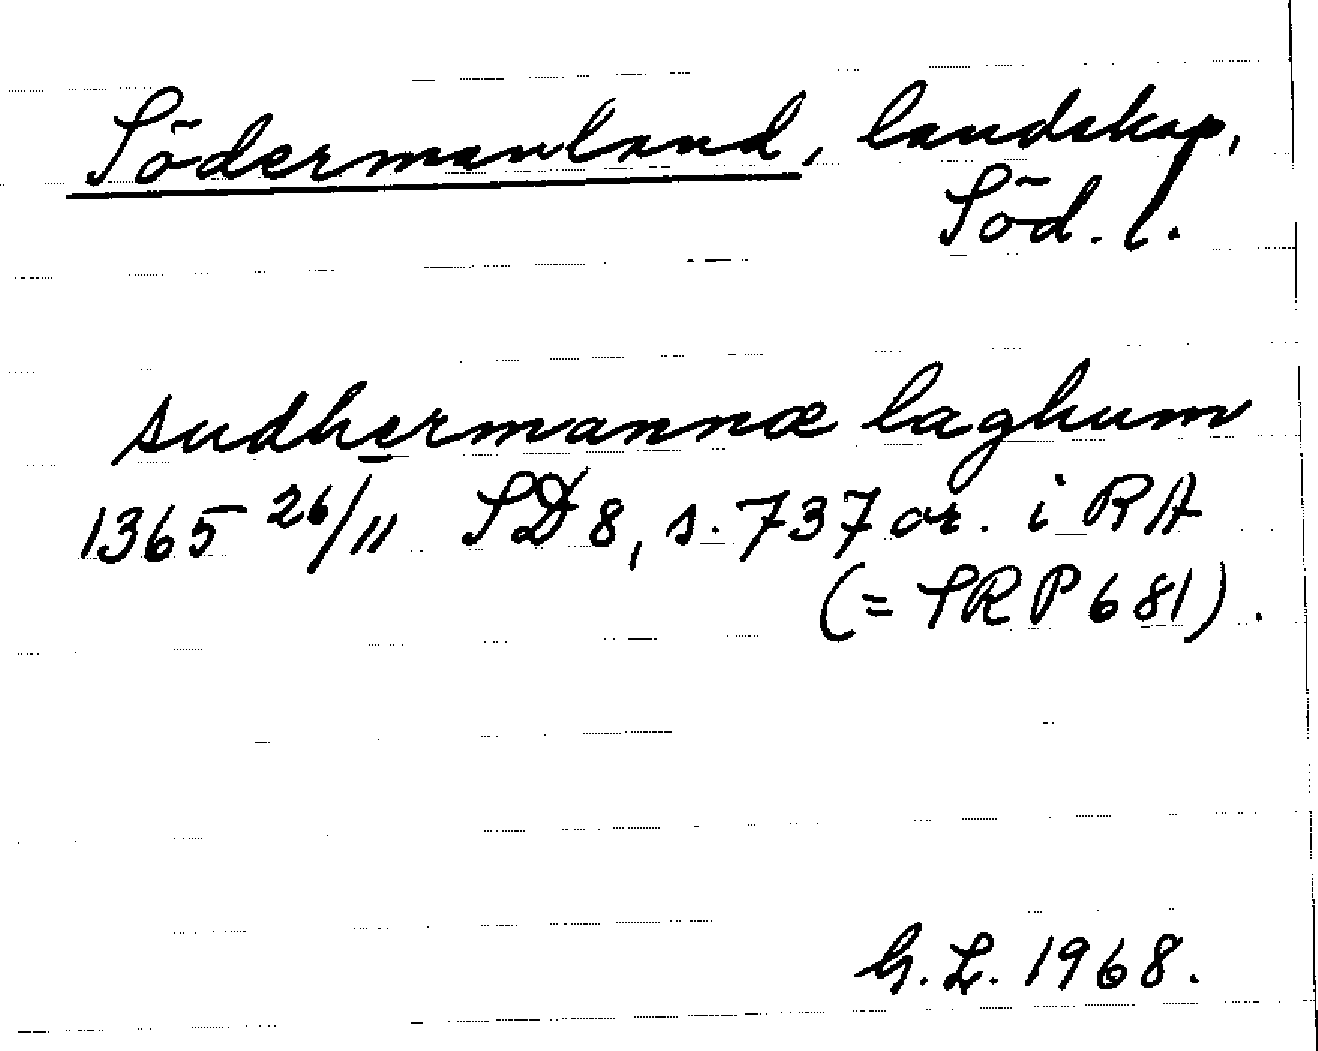 Södermanland, landskap,
Söd. l.
sudhermannæ laghum
1365 26/11 SD 8, s. 737 or. i RA
(= SRP 681).
G. L. 1968.